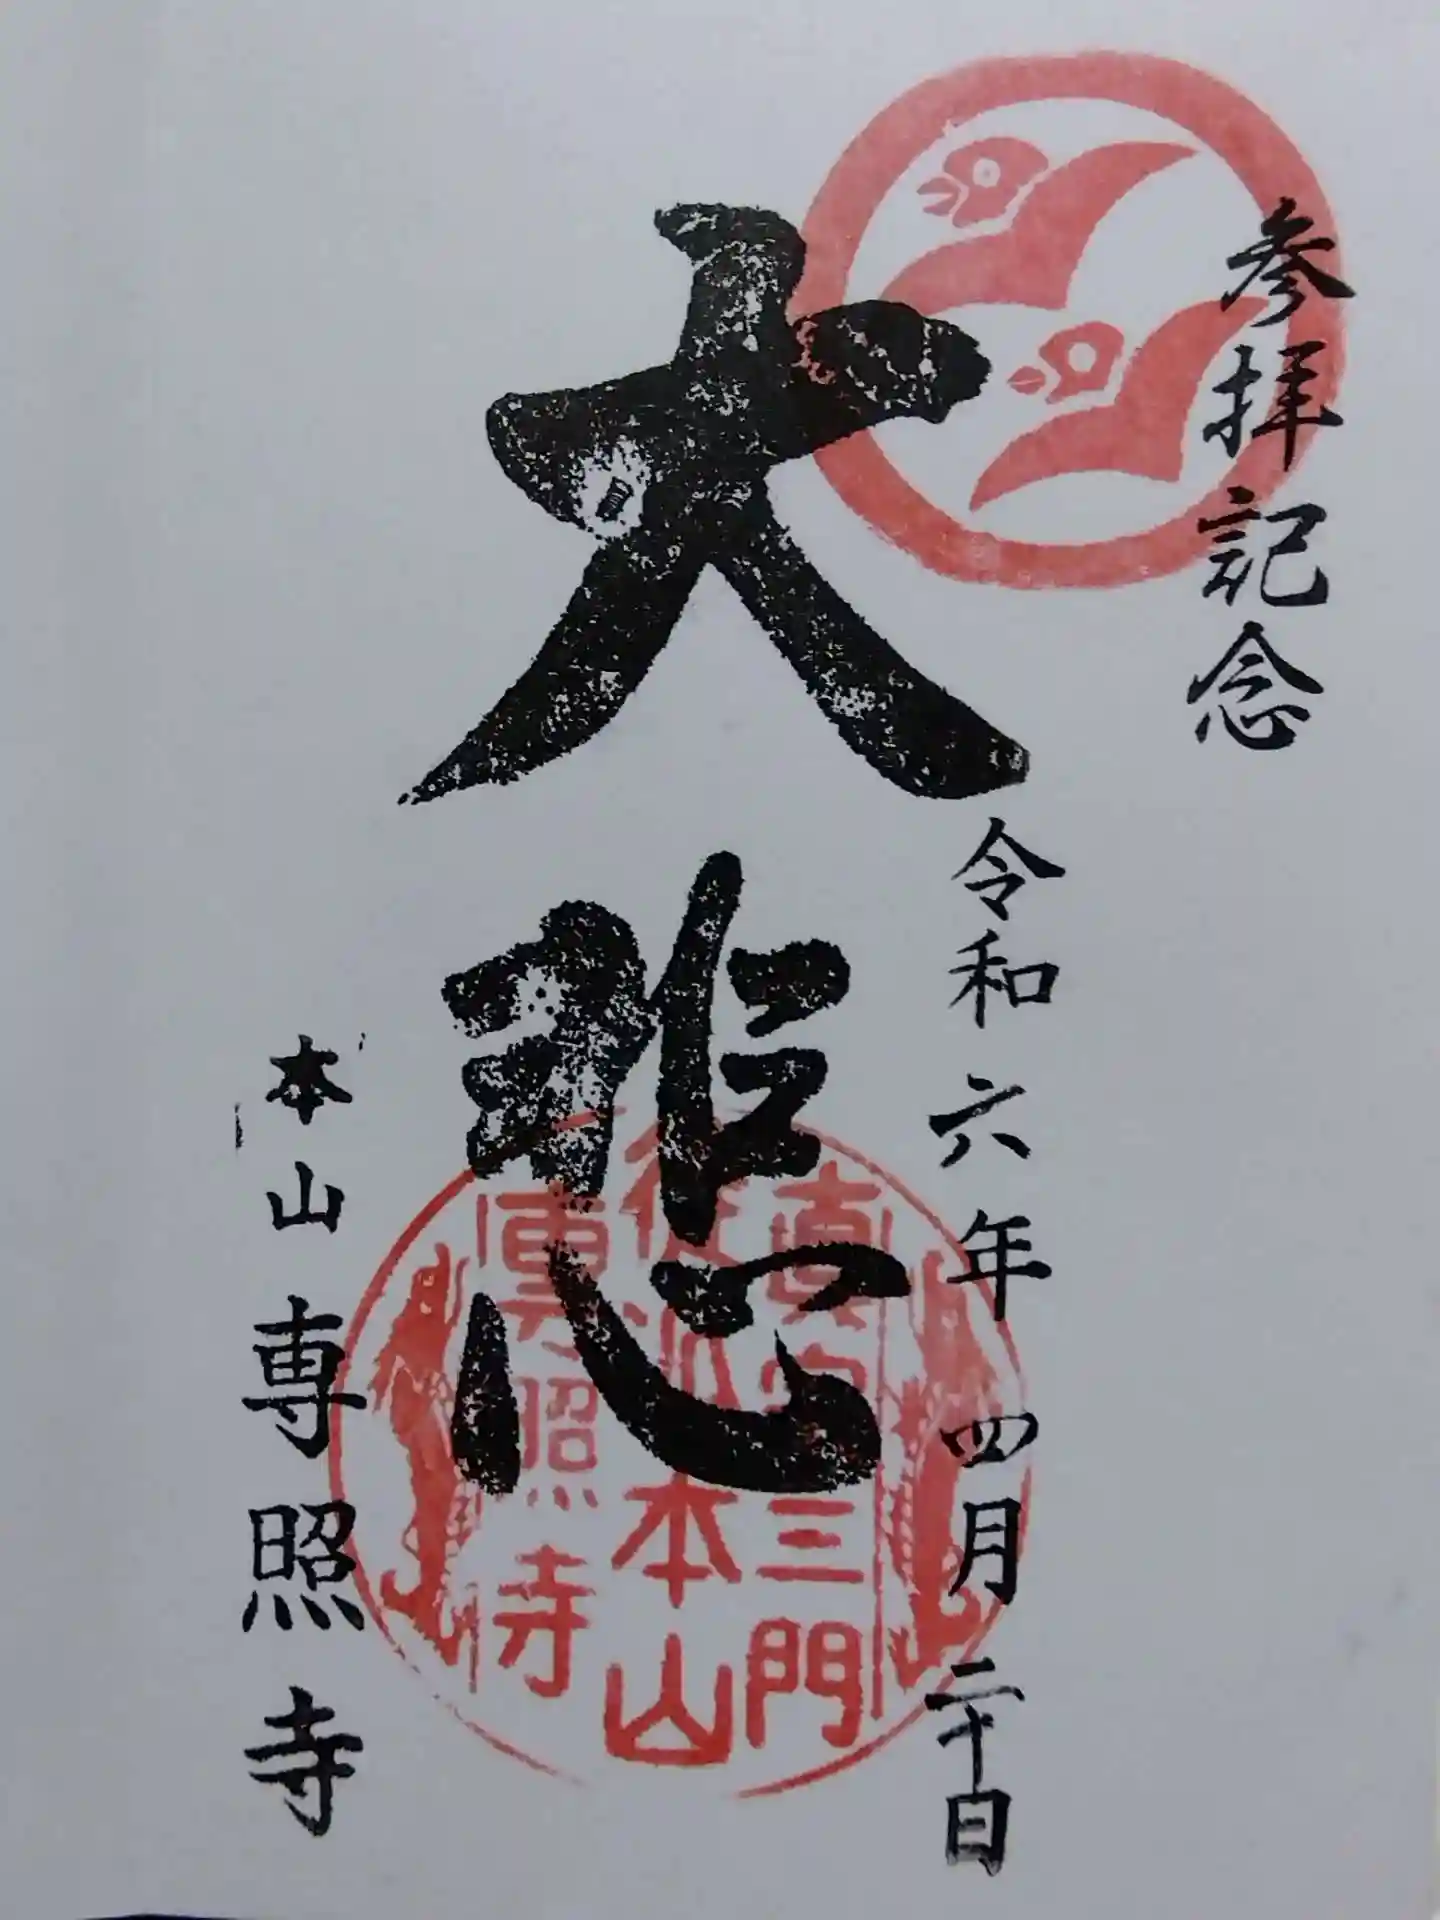 参拝記念
令和六年四月二十日
大悲
本山専照寺
真宗三門
徒派本山
専照寺